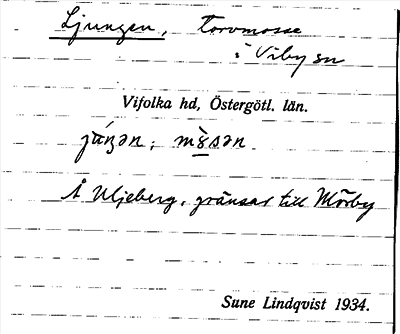 Ljungen, torvmosse
i Viby sn
Vifolka hd, Östergötl. län.
Å Uljeberg, gränsar till Mörby
Sune Lindqvist 1934.